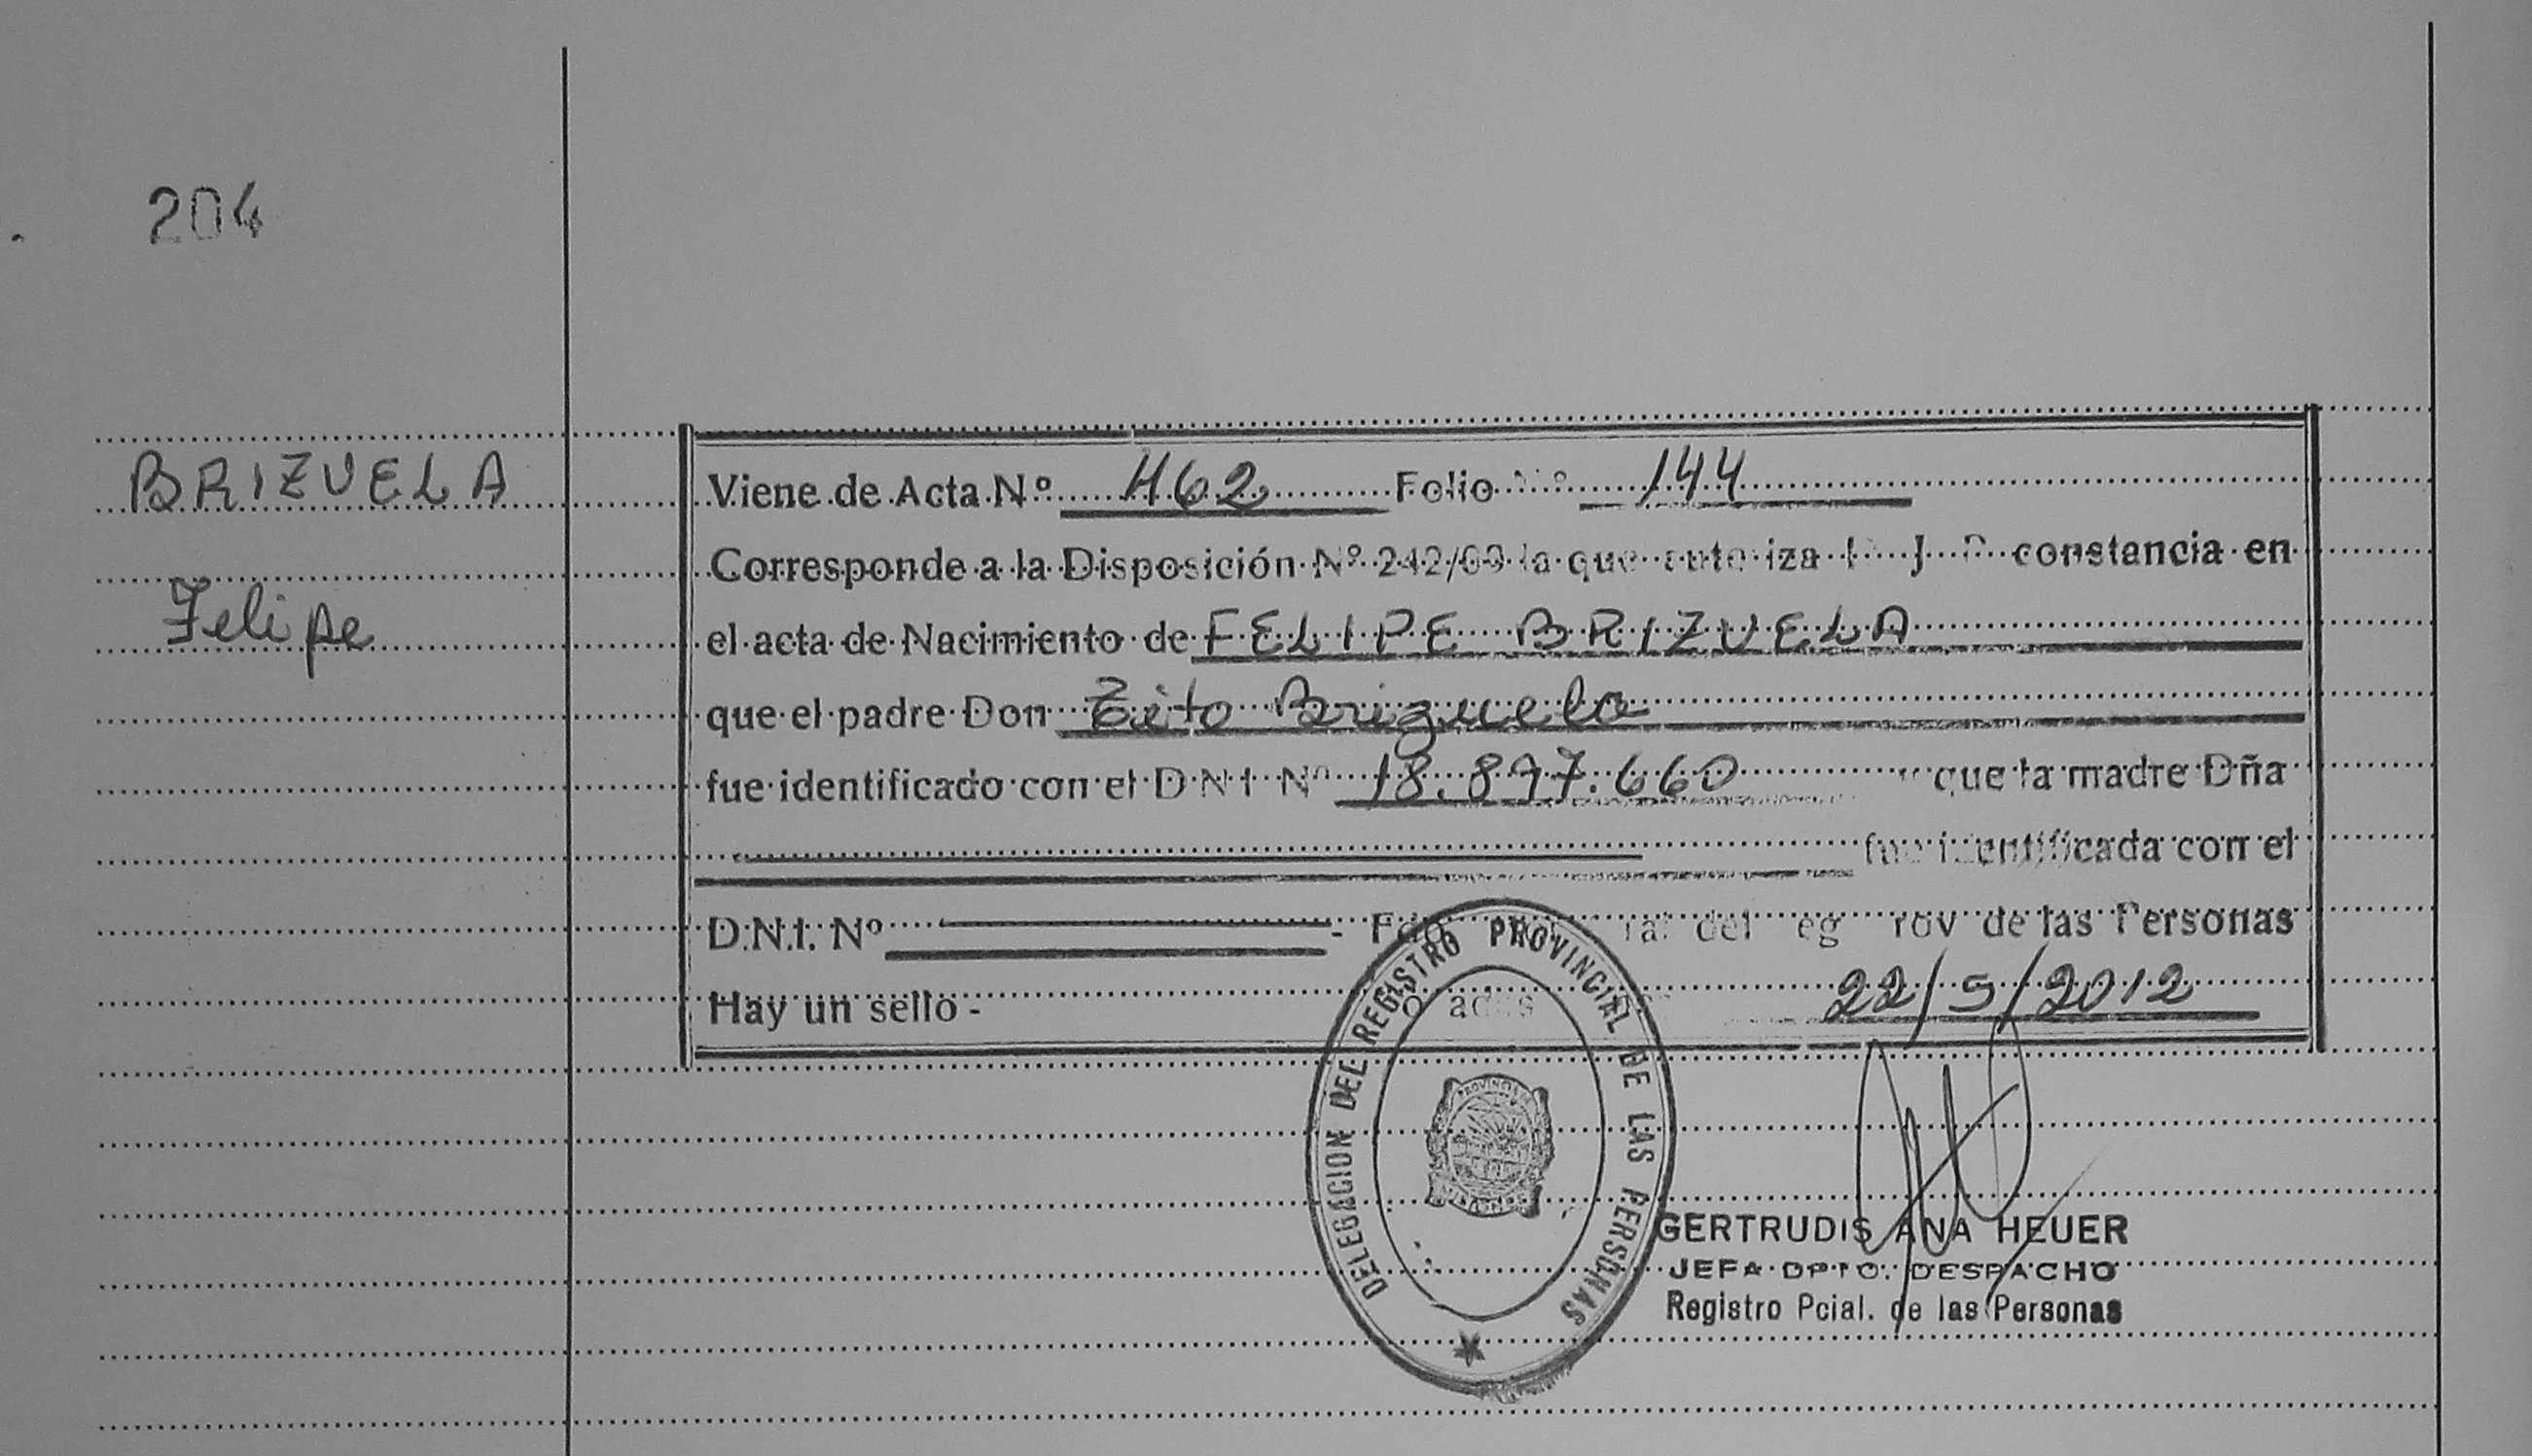 204
BRIZUELA
Felipe
Viene de Acta Nº 462 Folio Nº 144
Corresponde a la Disposición Nº 242/09 la que autoriza constancia en
el acta de Nacimiento de FELIPE BRIZUELA
que el padre Don Zito Brizuela
fue identificado con el D N I Nº 18.897.660 y que la madre Dña
fue identificada con el
D.N.I. Nº - Fdo del de las Personas
Hay un sello - 22/5/2012
DELEGACION DEL REGISTRO PROVINCIAL DE LAS PERSONAS
PROVINCIA
GERTRUDIS ANA HEUER
JEFA DPTO. DESPACHO
Registro Pcial. de las Personas